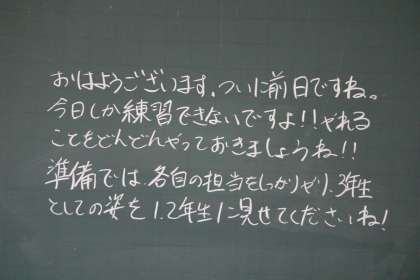 おはようございます。ついに前日ですね。
今日しか練習できないですよ!!やれる
ことをどんどんやっておきましょうね!!
準備では、各自の担当をしっかりやり、3年生
としての姿を1.2年生に見せてくださいね!